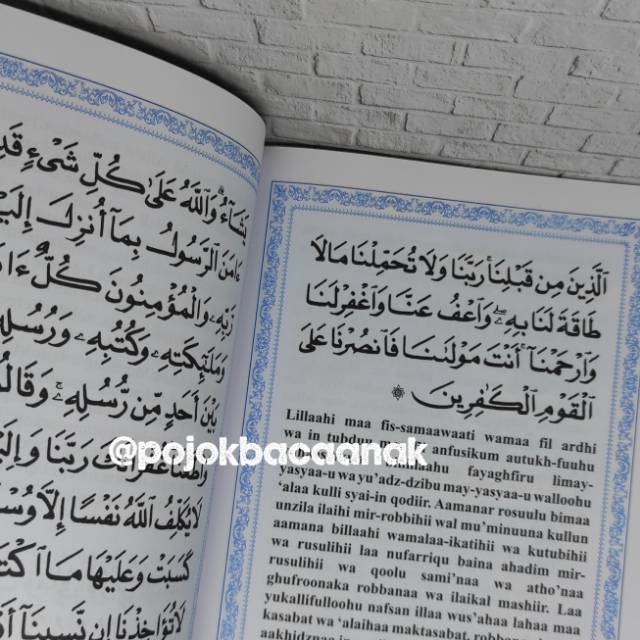 يَشَآءُ ۗ وَاللّٰهُ عَلٰى كُلِّ شَيْءٍ
ءَامَنَ الرَّسُولُ بِمَآ أُنْزِلَ
رَبِّهٖ وَالْمُؤْمِنُونَ كُلٌّ
وَمَلٰٓئِكَتِهٖ وَكُتُبِهٖ
بَيْنَ أَحَدٍ مِّنْ رُّسُلِهٖ ۚ
رَبَّنَا
لَا يُكَلِّفُ اللّٰهُ نَفْسًا إِلَّا
كَسَبَتْ وَعَلَيْهَا مَا
لَا تُؤَاخِذْنَا إِنْ نَّسِينَآ
الَّذِينَ مِنْ قَبْلِنَا ۚ رَبَّنَا وَلَا تُحَمِّلْنَا مَالَا
طَاقَةَ لَنَا بِهٖ ۖ وَاعْفُ عَنَّا وَاغْفِرْ لَنَا
وَارْحَمْنَا ۚ أَنْتَ مَوْلٰىنَا فَانْصُرْنَا عَلَى
الْقَوْمِ الْكٰفِرِينَ
Lillaahi maa fis-samaawaati wamaa fil ardhi
wa in tubduu anfusikum autukh-fuuhu
fayaghfiru limay-
yasyaa-u wa yu'adz-dzibu may-yasyaa-u walloohu
'alaa kulli syai-in qodiir. Aamanar rosuulu bimaa
unzila ilaihi mir-robbihii wal mu'minuuna kullun
aamana billaahi wamalaa-ikatihii wa kutubihii
wa rusulihii laa nufarriqu baina ahadim mir-
rusulihii wa qoolu sami'naa wa atho'naa
ghufroonaka robbanaa wa ilaikal mashiir. Laa
yukallifulloohu nafsan illaa wus'ahaa lahaa maa
kasabat wa 'alaihaa maktasabat, robbanaa
@pojokbacaanak